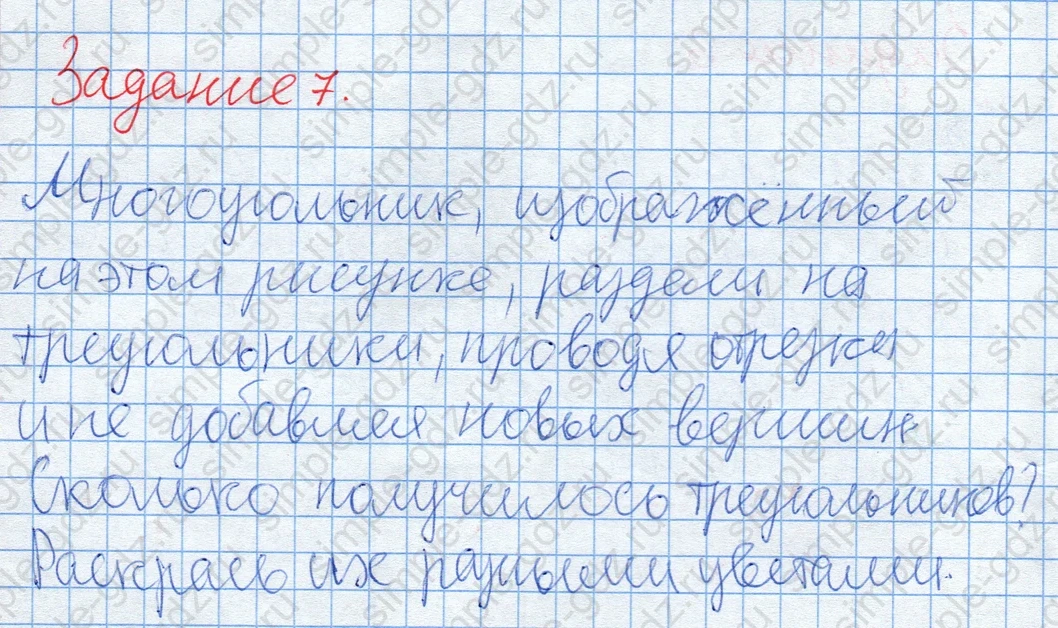 Задание 7.
Многоугольник, изображённый
на этом рисунке, раздели на
треугольники, проводя отрезки
и не добавляя новых вершин.
Сколько получилось треугольников?
Раскрась их разными цветами.